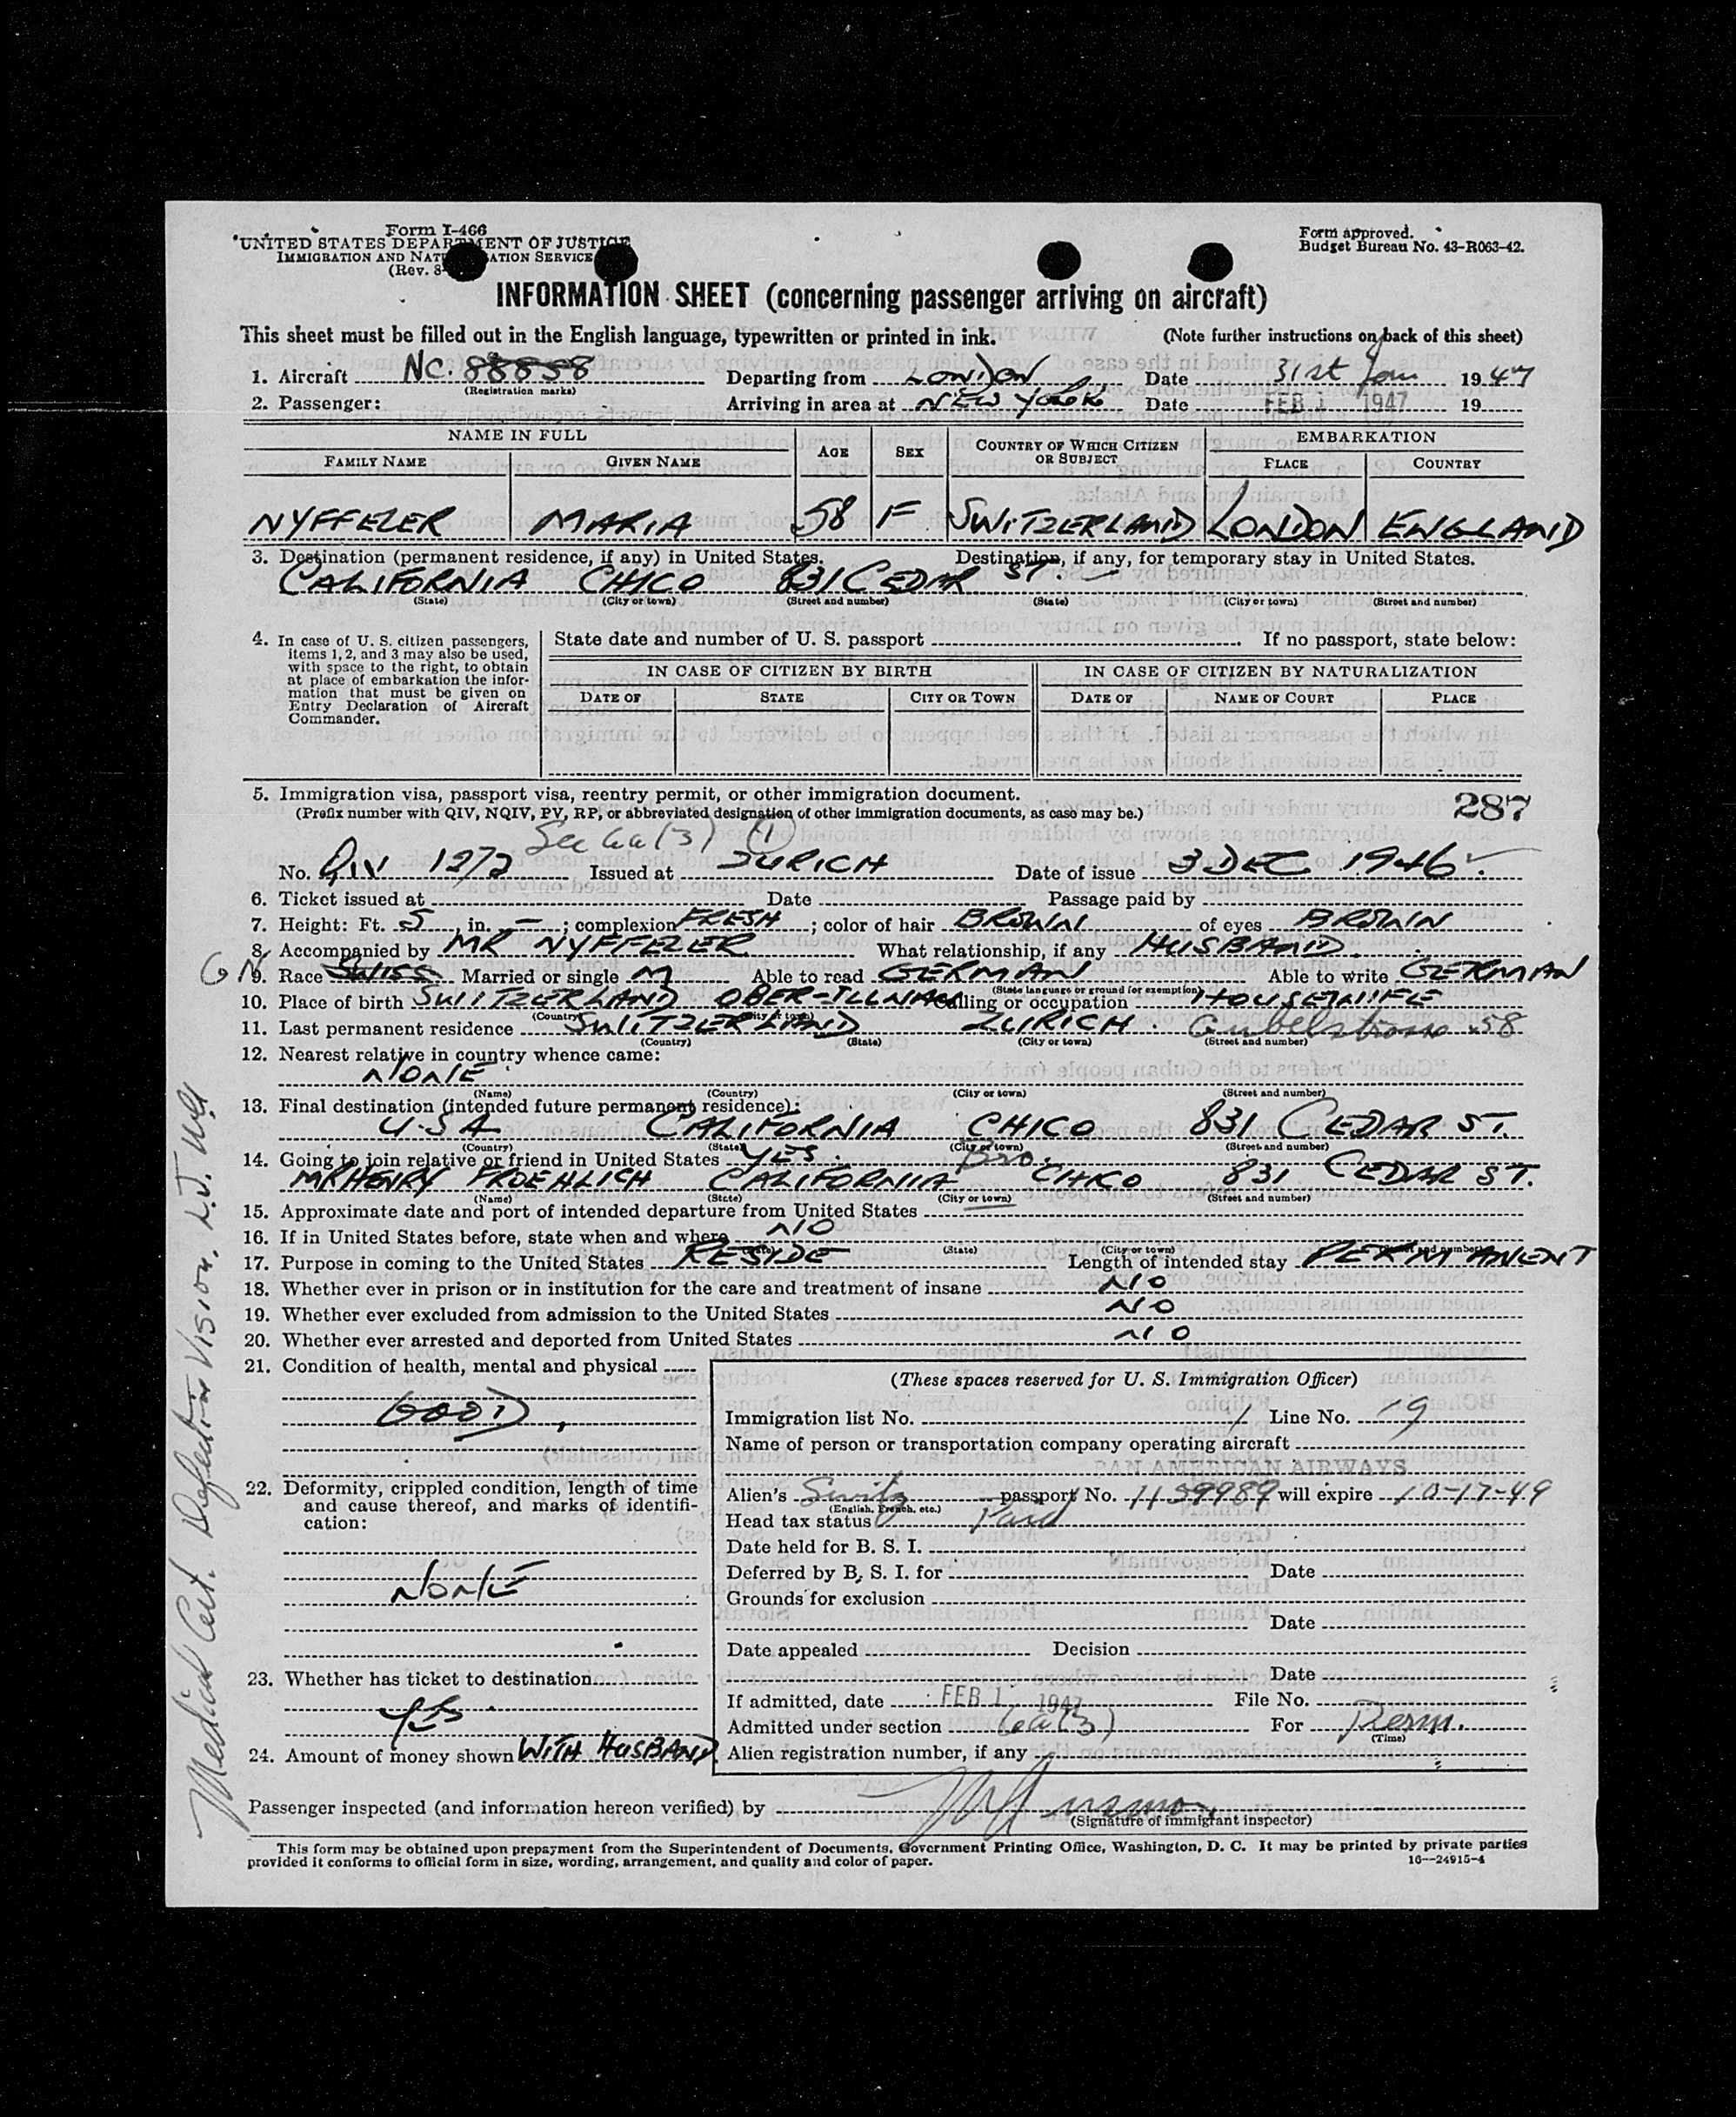 Form I-466
UNITED STATES DEPARTMENT OF JUSTICE
IMMIGRATION AND NATURALIZATION SERVICE
(Rev. 8-
Form approved.
Budget Bureau No. 43-R063-42.
INFORMATION SHEET (concerning passenger arriving on aircraft)
This sheet must be filled out in the English language, typewritten or printed in ink. (Note further instructions on back of this sheet)
1. Aircraft NC. 88858 Departing from LONDON Date 31st Jan 1947
(Registration marks)
2. Passenger: Arriving in area at NEW YORK Date FEB 1 1947 19
NAME IN FULL AGE SEX COUNTRY OF WHICH CITIZEN OR SUBJECT EMBARKATION
FAMILY NAME GIVEN NAME PLACE COUNTRY
NYFFELER MARIA 58 F SWITZERLAND LONDON ENGLAND
3. Destination (permanent residence, if any) in United States. Destination, if any, for temporary stay in United States.
CALIFORNIA CHICO 831 CEDAR ST. —
(State) (City or town) (Street and number) (State) (City or town) (Street and number)
4. In case of U. S. citizen passengers, items 1, 2, and 3 may also be used, with space to the right, to obtain at place of embarkation the information that must be given on Entry Declaration of Aircraft Commander.
State date and number of U. S. passport If no passport, state below:
IN CASE OF CITIZEN BY BIRTH IN CASE OF CITIZEN BY NATURALIZATION
DATE OF STATE CITY OR TOWN DATE OF NAME OF COURT PLACE
5. Immigration visa, passport visa, reentry permit, or other immigration document. 287
(Prefix number with QIV, NQIV, PV, RP, or abbreviated designation of other immigration documents, as case may be.)
See 6a(3) (1)
No. QIV 1272 Issued at ZURICH Date of issue 3 DEC 1946
6. Ticket issued at Date Passage paid by
7. Height: Ft. 5, in. —; complexion FRESH; color of hair BROWN of eyes BROWN
8. Accompanied by MR NYFFELER What relationship, if any HUSBAND.
9. Race SWISS Married or single M Able to read GERMAN Able to write GERMAN
(State language or ground for exemption)
10. Place of birth SWITZERLAND OBER-ILLNAU Calling or occupation HOUSEWIFE
(Country) (City or town)
11. Last permanent residence SWITZERLAND ZURICH. Gubelstrasse 58
(Country) (State) (City or town) (Street and number)
12. Nearest relative in country whence came:
NONE
(Name) (Country) (City or town) (Street and number)
13. Final destination (intended future permanent residence):
U.S.A CALIFORNIA CHICO 831 CEDAR ST.
(Country) (State) (City or town) (Street and number)
14. Going to join relative or friend in United States YES. Bro.
MR HENRY FROEHLICH CALIFORNIA CHICO 831 CEDAR ST.
(Name) (State) (City or town) (Street and number)
15. Approximate date and port of intended departure from United States
16. If in United States before, state when and where NO
(State) (City or town) (Street and number)
17. Purpose in coming to the United States RESIDE Length of intended stay PERMANENT
18. Whether ever in prison or in institution for the care and treatment of insane NO
19. Whether ever excluded from admission to the United States NO
20. Whether ever arrested and deported from United States NO
21. Condition of health, mental and physical
GOOD,
22. Deformity, crippled condition, length of time and cause thereof, and marks of identification:
NONE
23. Whether has ticket to destination
YES.
24. Amount of money shown WITH HUSBAND
(These spaces reserved for U. S. Immigration Officer)
Immigration list No. 1 Line No. 19
Name of person or transportation company operating aircraft
PAN AMERICAN AIRWAYS
Alien's Switz passport No. 1159989 will expire 10-17-49
(English, French, etc.)
Head tax status Paid
Date held for B. S. I.
Deferred by B. S. I. for Date
Grounds for exclusion
Date
Date appealed Decision
Date
If admitted, date FEB 1 1947 File No.
Admitted under section 6a(3) For Perm.
(Time)
Alien registration number, if any
Passenger inspected (and information hereon verified) by
(Signature of immigrant inspector)
This form may be obtained upon prepayment from the Superintendent of Documents, Government Printing Office, Washington, D. C. It may be printed by private parties
provided it conforms to official form in size, wording, arrangement, and quality and color of paper. 16—24915-4
Medical Cert. Defective Vision.